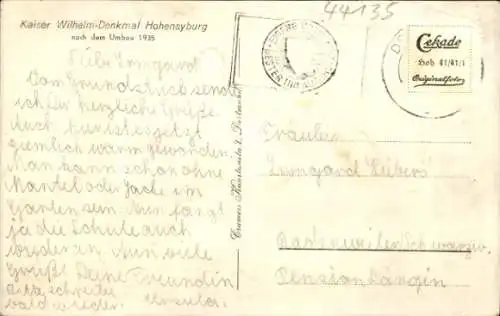 Kaiser Wilhelm-Denkmal Hohensyburg
nach dem Umbau 1935
44135
Liebe Irmgard
Vom Grundstück sende
ich Dir herzliche Grüße.
Auch hier ist es jetzt
ziemlich warm geworden.
Man kann schon ohne
Mantel oder Jacke im
Garten sein. Nun fängt
ja die Schule auch
wieder an. Nun viele
Grüße Deine Freundin
bitte schreibe
bald wieder. Ursula.
Cramers Kunstanstalt, Dortmund
Cekade
Hob 41/41/1
Originalfoto
Fräulein
Irmgard Lübers
Badenweiler/Schwarzw.
Pension Längin